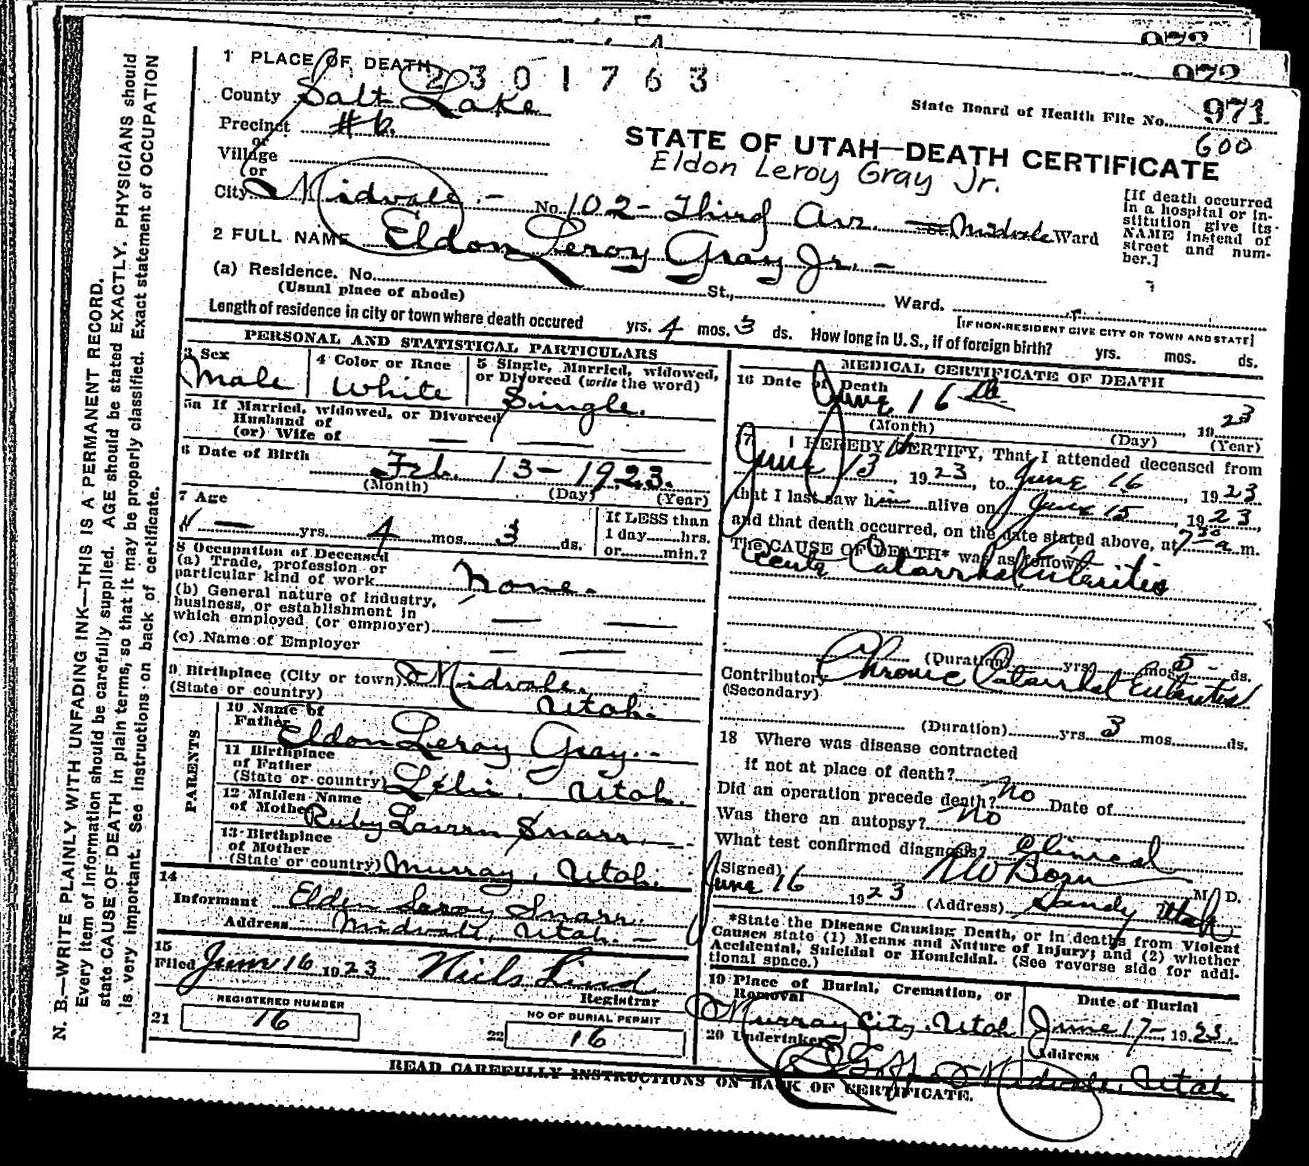 972
972
971
600
1 PLACE OF DEATH
2301763
State Board of Health File No. 971
County Salt Lake
Precinct #6.
or
Village
or
City Midvale. - No. 102 - Third Ave. St. Midvale Ward
STATE OF UTAH—DEATH CERTIFICATE
Eldon Leroy Gray Jr.
[If death occurred
in a hospital or in-
stitution give its
NAME instead of
street and num-
ber.]
2 FULL NAME Eldon Leroy Gray Jr. -
(a) Residence. No. St., Ward.
(Usual place of abode)
[IF NON-RESIDENT GIVE CITY OR TOWN AND STATE]
Length of residence in city or town where death occured yrs. 4 mos. 3 ds. How long in U. S., if of foreign birth? yrs. mos. ds.
PERSONAL AND STATISTICAL PARTICULARS
3 Sex
Male
4 Color or Race
White
5 Single, Married, widowed,
or Divorced (write the word)
Single.
5a If Married, widowed, or Divorced
Husband of
(or) Wife of — —
6 Date of Birth Feb. 13 - 1923.
(Month) (Day) (Year)
7 Age
— yrs. 4 mos. 3 ds.
If LESS than
1 day hrs.
or min.?
8 Occupation of Deceased
(a) Trade, profession or
particular kind of work None -
(b) General nature of Industry,
business, or establishment in
which employed (or employer) — —
(c) Name of Employer — —
9 Birthplace (City or town) Midvale.
(State or country) Utah.
PARENTS
10 Name of
Father Eldon Leroy Gray. -
11 Birthplace
of Father
(State or country) Lehi, Utah.
12 Maiden Name
of Mother Ruby Snarr.
13 Birthplace
of Mother
(State or country) Murray, Utah.
14
Informant Eldon Leroy Snarr.
Address Midvale, Utah. -
15
Filed June 16 1923 Niels Lind
Registrar
REGISTERED NUMBER
21 16
NO OF BURIAL PERMIT
22 16
MEDICAL CERTIFICATE OF DEATH
16 Date of Death
June 16 th 1923
(Month) (Day) (Year)
17 I HEREBY CERTIFY, That I attended deceased from
June 13, 1923, to June 16, 1923
that I last saw him alive on June 15, 1923,
and that death occurred, on the date stated above, at 7 30 a. m.
The CAUSE OF DEATH* was as follows:
Acute Catarrhal Enteritis
(Duration) yrs. mos. 5 - ds.
Contributory Chronic Catarrhal Enteritis
(Secondary)
(Duration) yrs. 3 mos. ds.
18 Where was disease contracted
if not at place of death?
Did an operation precede death? No Date of
Was there an autopsy? No
What test confirmed diagnosis? Clinical
(Signed) M. D.
June 16 1923 (Address) Sandy Utah
*State the Disease Causing Death, or in deaths from Violent
Causes state (1) Means and Nature of Injury; and (2) whether
Accidental, Suicidal or Homicidal. (See reverse side for addi-
tional space.)
19 Place of Burial, Cremation, or
Removal
Murray City. Utah
Date of Burial
June 17 - 1923.
20 Undertaker
Address
Midvale, Utah
READ CAREFULLY INSTRUCTIONS ON BACK OF CERTIFICATE.
N. B.—WRITE PLAINLY WITH UNFADING INK—THIS IS A PERMANENT RECORD.
Every item of information should be carefully supplied. AGE should be stated EXACTLY. PHYSICIANS should
state CAUSE OF DEATH in plain terms, so that it may be properly classified. Exact statement of OCCUPATION
is very important. See instructions on back of certificate.